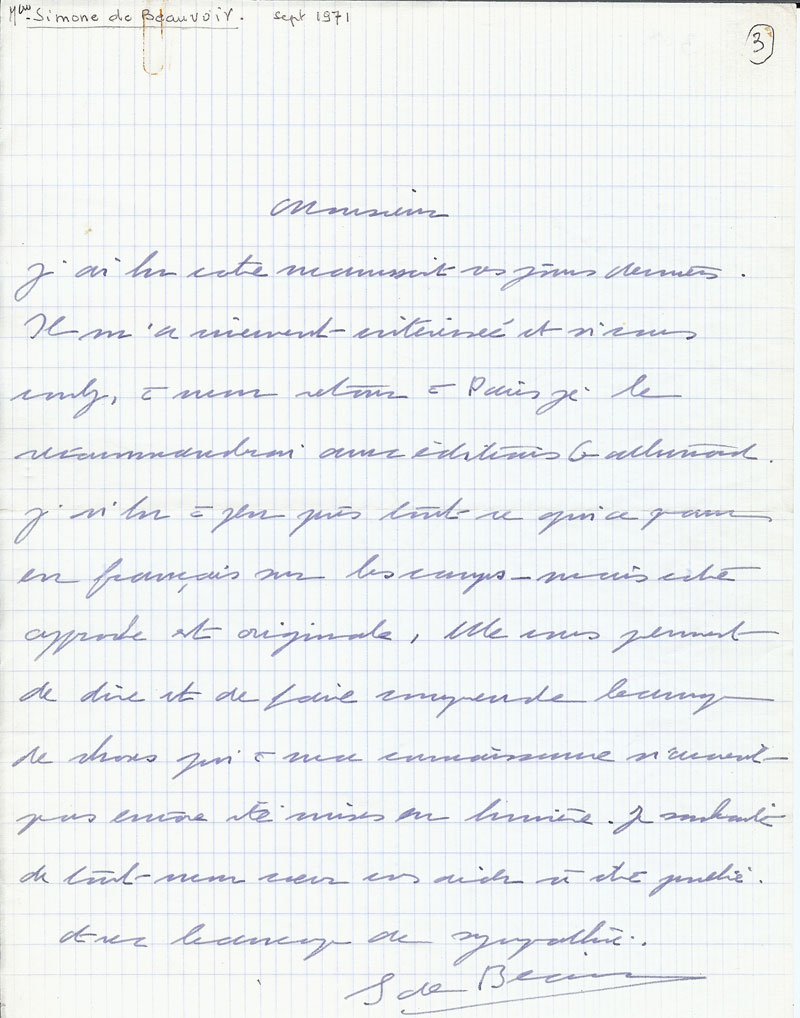 Mme Simone de Beauvoir. Sept 1971
3
Monsieur
J'ai lu votre manuscrit ces jours derniers.
Il m'a vivement intéressée et si vous
voulez, à mon retour à Paris je le
recommandrai aux éditions Gallimard.
J'ai lu à peu près tout ce qui a paru
en français sur les camps – mais votre
approche est originale, elle vous permet
de dire et de faire comprendre beaucoup
de choses qui à ma connaissance n'avaient
pas encore été mises en lumière. Je souhaite
de tout mon cœur vos aider à être publié.
Avec beaucoup de sympathie.
S de Beauvoir